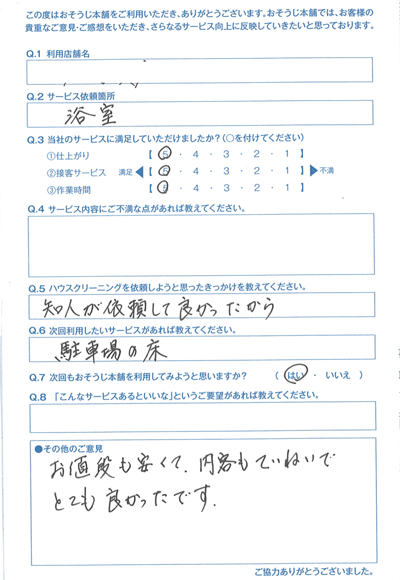 この度はおそうじ本舗をご利用いただき、ありがとうございます。おそうじ本舗では、お客様の
貴重なご意見・ご感想をいただき、さらなるサービス向上に反映していきたいと思っております。
Q.1 利用店舗名
Q.2 サービス依頼箇所
浴室
Q.3 当社のサービスに満足していただけましたか?(○を付けてください)
①仕上がり 【 5 ・ 4 ・ 3 ・ 2 ・ 1 】
②接客サービス 満足 ◀【 5 ・ 4 ・ 3 ・ 2 ・ 1 】▶ 不満
③作業時間 【 5 ・ 4 ・ 3 ・ 2 ・ 1 】
Q.4 サービス内容にご不満な点があれば教えてください。
Q.5 ハウスクリーニングを依頼しようと思ったきっかけを教えてください。
知人が依頼して良かったから
Q.6 次回利用したいサービスがあれば教えてください。
駐車場の床
Q.7 次回もおそうじ本舗を利用してみようと思いますか? ( はい ・ いいえ )
Q.8 「こんなサービスあるといいな」というご要望があれば教えてください。
●その他のご意見
お値段も安くて、内容もていねいで
とても良かったです.
ご協力ありがとうございました。